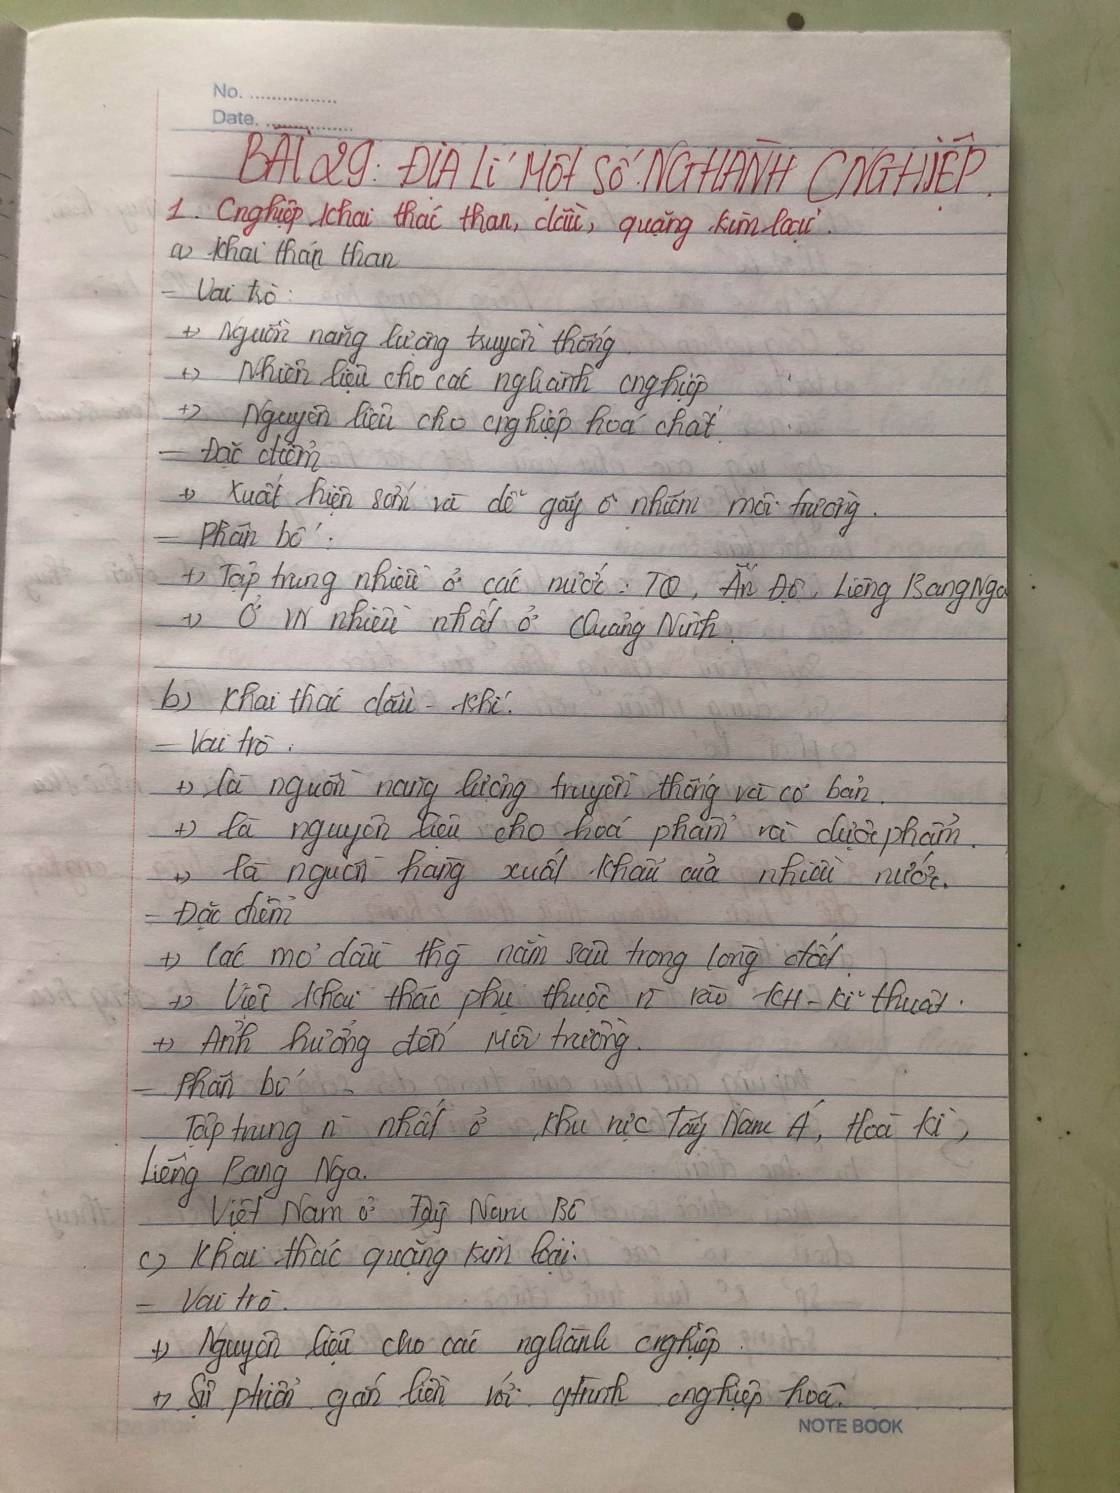 No. ................
Date. ................
BÀI 29: ĐỊA LÍ MỘT SỐ NGHÀNH CNGHIỆP.
1. Cnghiệp khai thác than, dầu, quặng kim loại.
a) Khai thán than
- Vai trò:
+) Nguồn năng lượng truyền thống.
+) Nhiên liệu cho các nghành cnghiệp
+) Nguyên liệu cho cnghiệp hoá chất.
- Đặc điểm
+) Xuất hiện sớm và dễ gây ô nhiễm môi trường.
- Phân bố:
+) Tập trung nhiều ở các nước: TQ, Ấn Độ, Liêng Bang Nga
+) Ở VN nhiều nhất ở Quảng Ninh.
b) Khai thác dầu - khí.
- Vai trò:
+) là nguồn năng lượng truyền thống và cơ bản.
+) là nguyên liệu cho hoá phẩm và dược phẩm.
+) là nguồn hàng xuất khẩu của nhiều nước.
- Đặc điểm
+) Các mỏ dầu thg nằm sâu trong lòng đất.
+) Việc khai thác phụ thuộc n vào KH-kĩ thuật.
+) Ảnh hưởng đến Môi trường.
- Phân bố
Tập trung n nhất ở khu vực Tây Nam Á, Hoa kì,
Liêng Bang Nga.
Việt Nam ở Tây Nam Bộ
c) Khai thác quặng kim loại:
- Vai trò.
+) Nguyên liệu cho các nghành cnghiệp.
+) Sự ptriển gắn liền với qtrình cnghiệp hoá.
NOTE BOOK